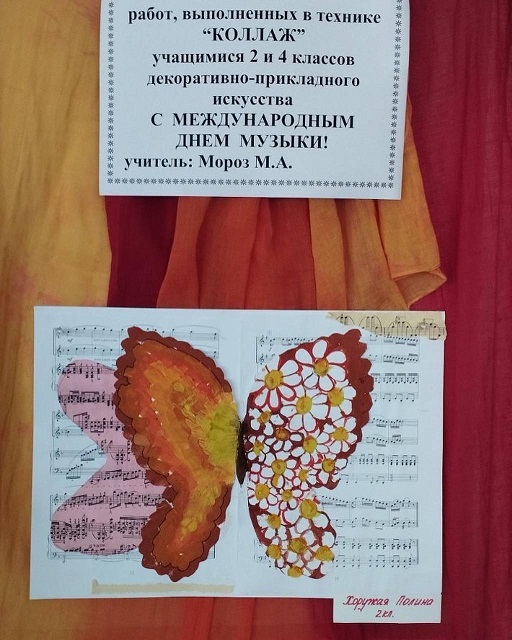 работ, выполненных в технике
“КОЛЛАЖ”
учащимися 2 и 4 классов
декоративно-прикладного
искусства
С МЕЖДУНАРОДНЫМ
ДНЕМ МУЗЫКИ!
учитель: Мороз М.А.
Хоружая Полина
2 кл.